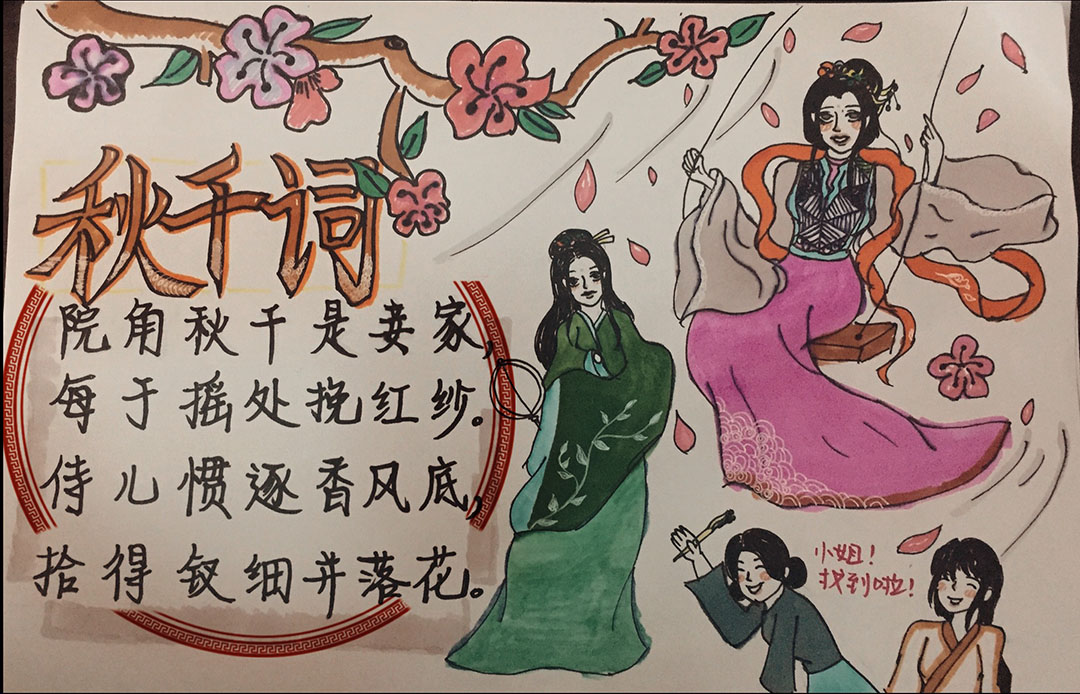 秋千词
院角秋千是妾家，
每于摇处挽红纱。
侍儿惯逐香风底，
拾得钗细并落花。
小姐！
找到啦！